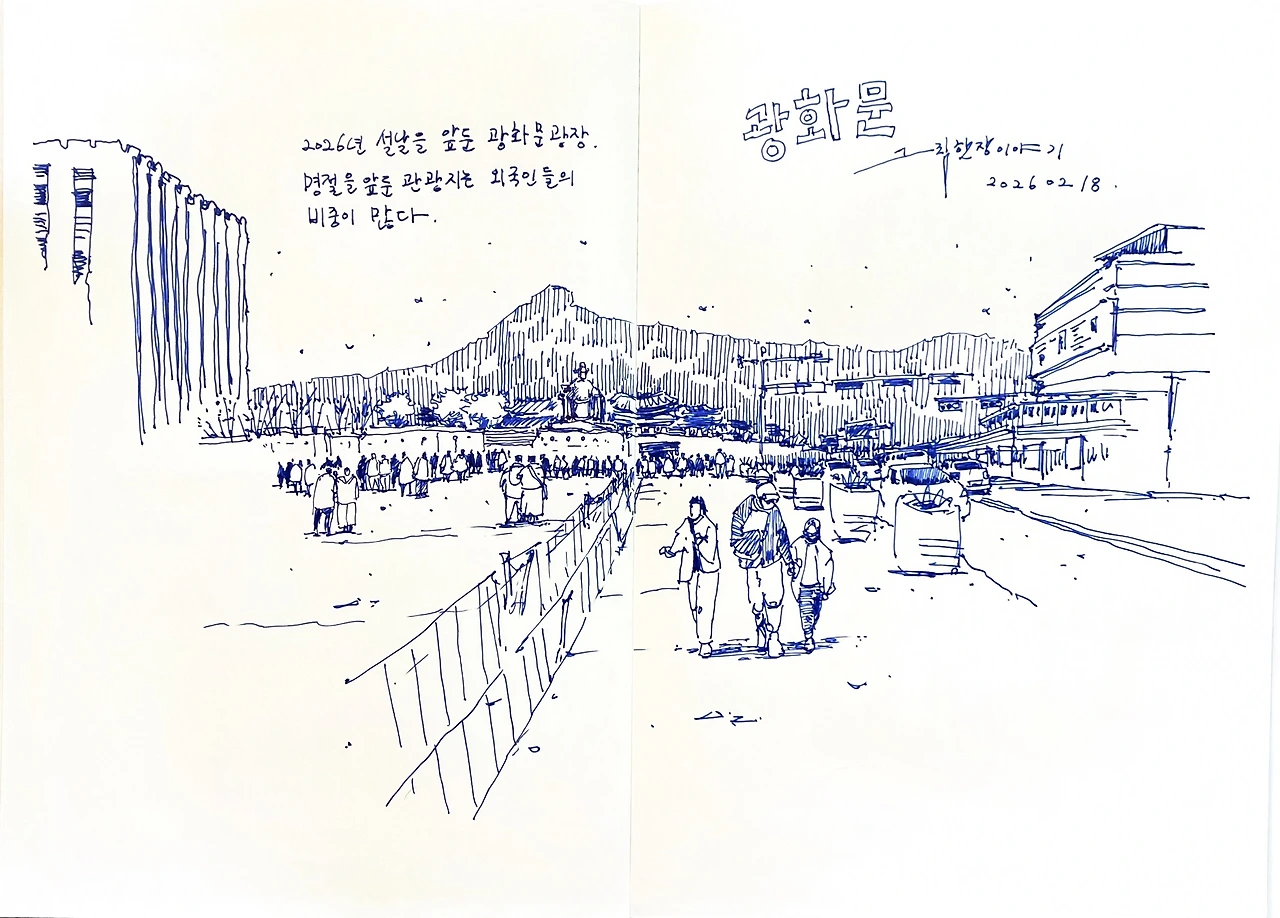 2026년 설날을 앞둔 광화문광장.
명절을 앞둔 관광지는 외국인들의
비중이 많다.
광화문
이야기
2026 02 18.